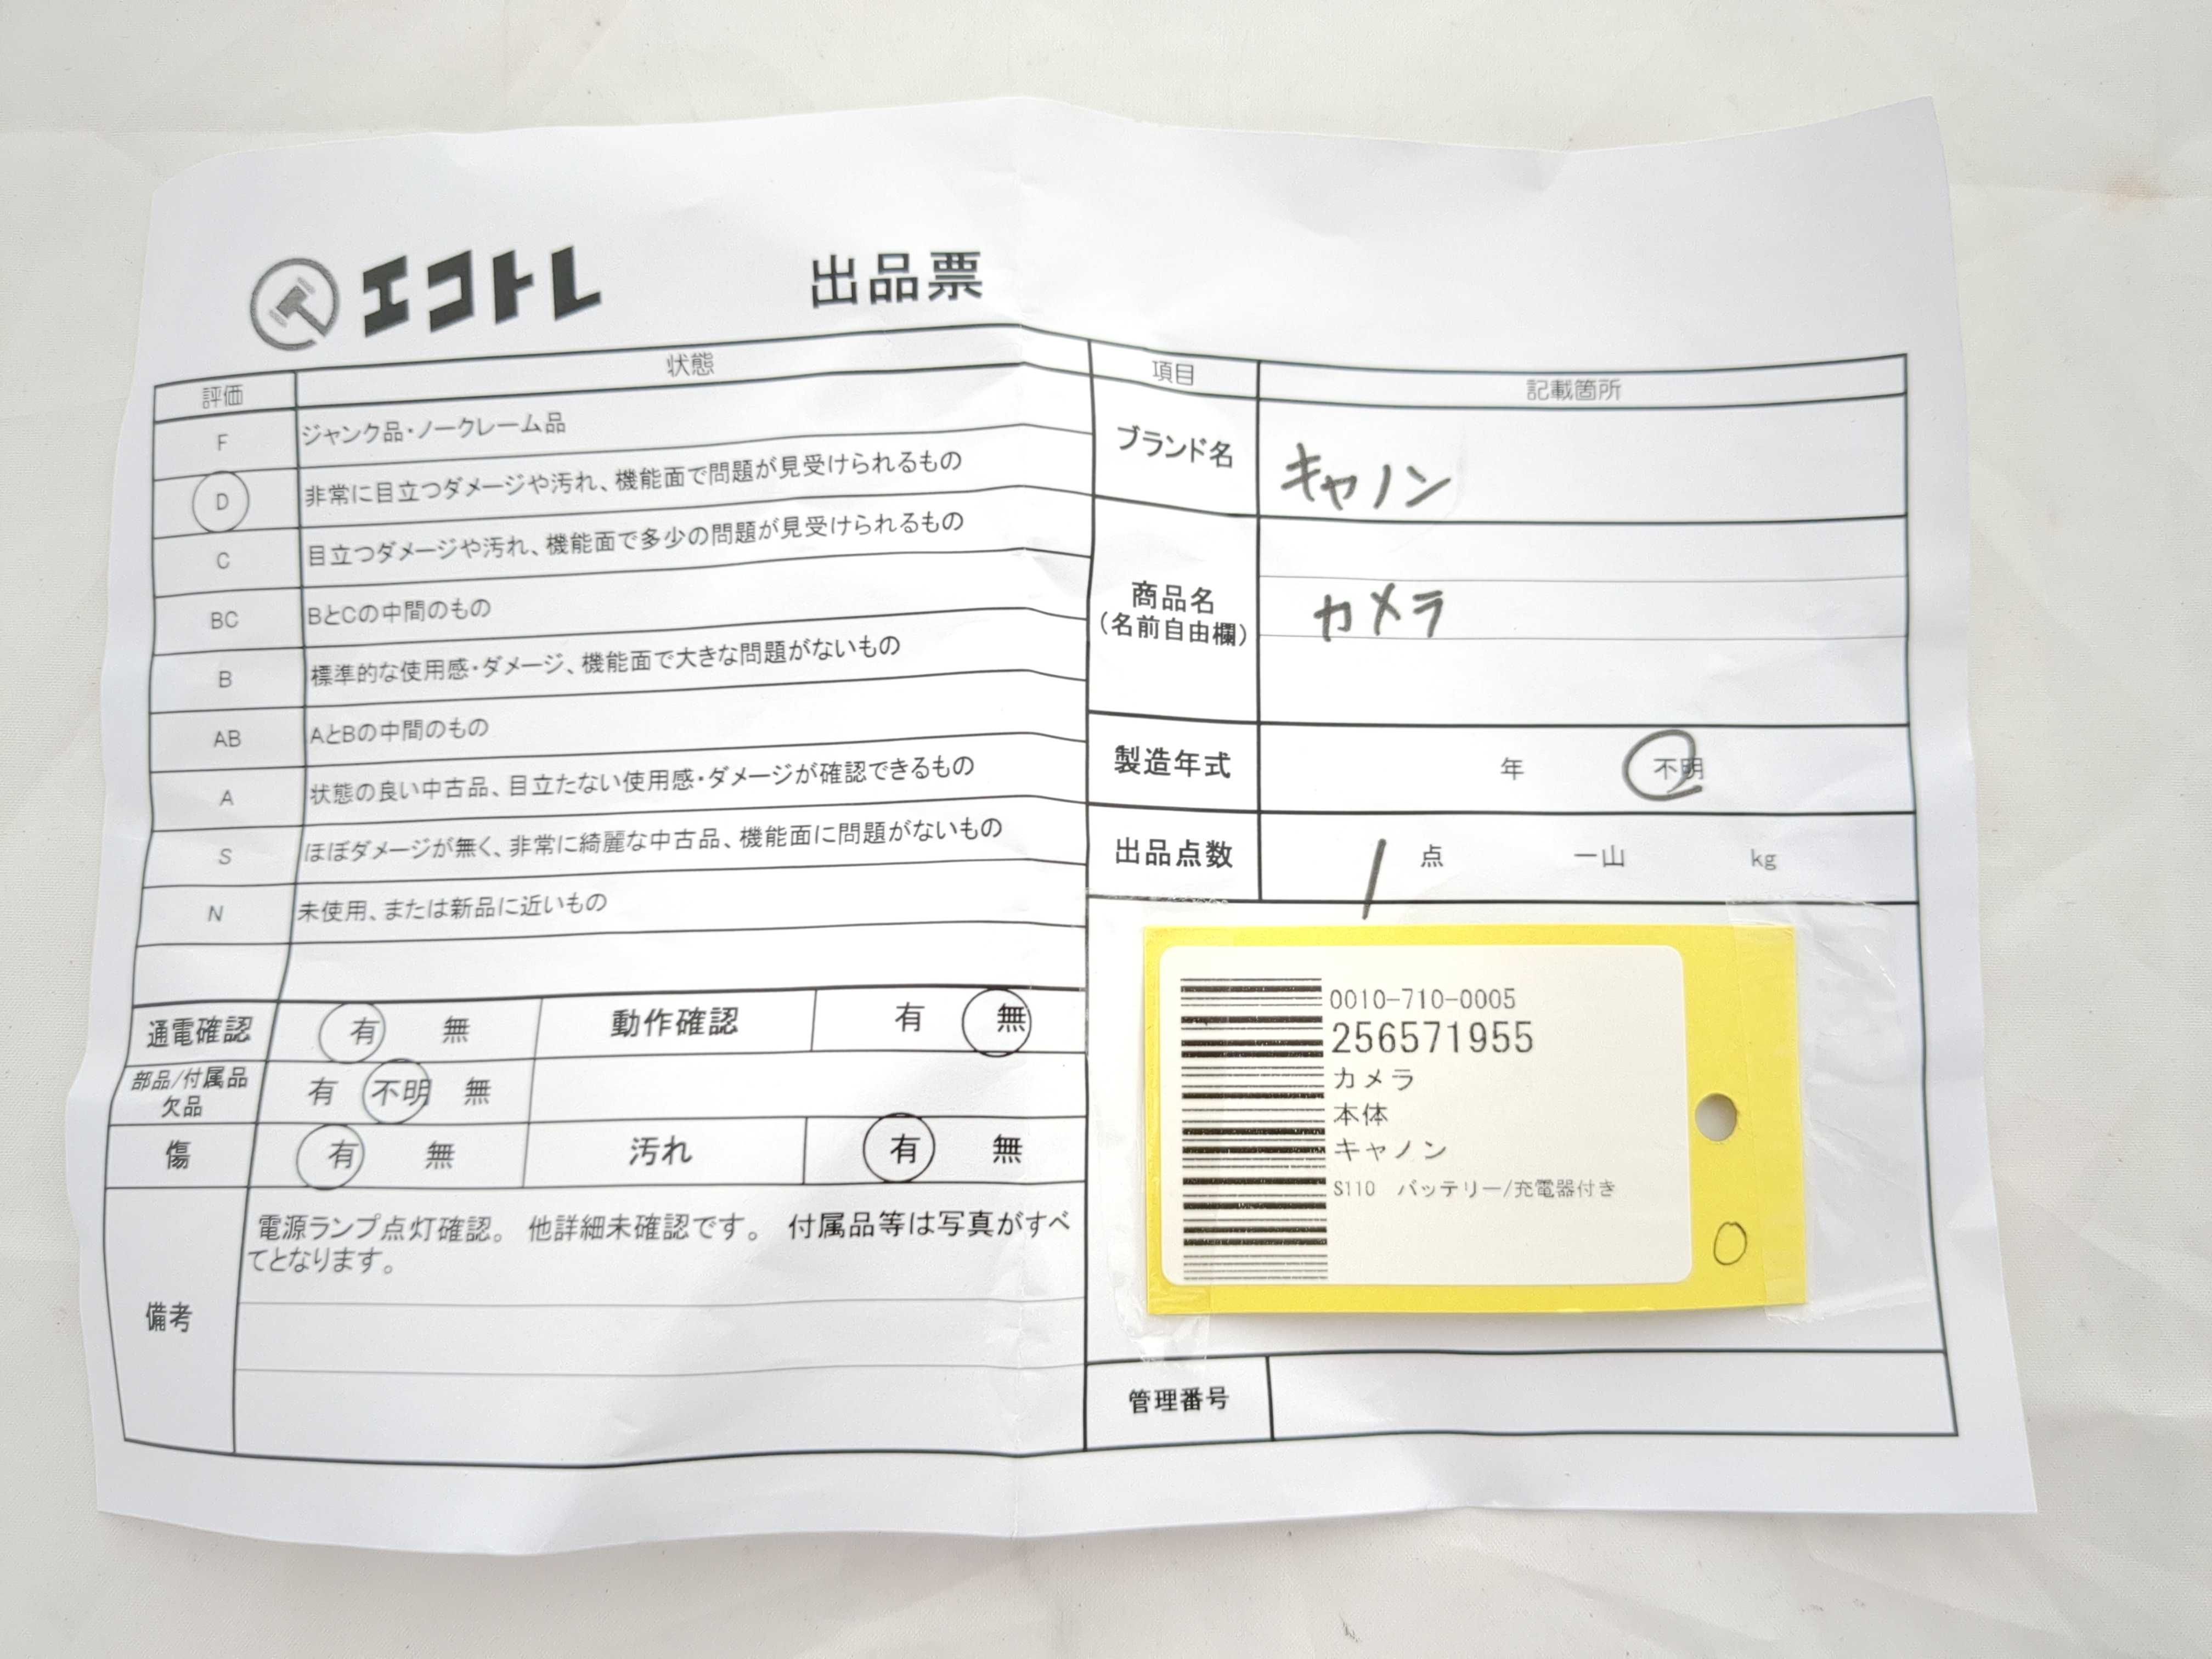 エコトレ 出品票
評価 状態
F ジャンク品・ノークレーム品
D 非常に目立つダメージや汚れ、機能面で問題が見受けられるもの
C 目立つダメージや汚れ、機能面で多少の問題が見受けられるもの
BC BとCの中間のもの
B 標準的な使用感・ダメージ、機能面で大きな問題がないもの
AB AとBの中間のもの
A 状態の良い中古品、目立たない使用感・ダメージが確認できるもの
S ほぼダメージが無く、非常に綺麗な中古品、機能面に問題がないもの
N 未使用、または新品に近いもの
通電確認 有 無 動作確認 有 無
部品/付属品
欠品 有 不明 無
傷 有 無 汚れ 有 無
備考
電源ランプ点灯確認。 他詳細未確認です。 付属品等は写真がすべ
てとなります。
項目 記載箇所
ブランド名 キャノン
商品名
(名前自由欄) カメラ
製造年式 年 不明
出品点数 1 点 一山 kg
0010-710-0005
256571955
カメラ
本体
キャノン
S110 バッテリー/充電器付き
管理番号